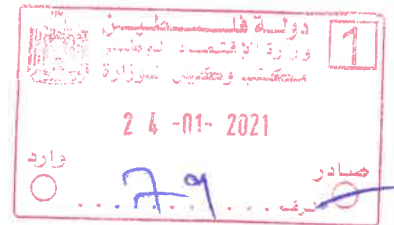 دولة فلسطين
وزارة الاقتصاد الوطني
مكتب وكيل الوزارة
1
24-01-2021
وارد
صادر
79